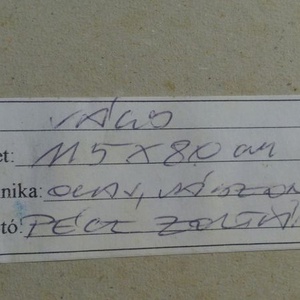 VÁGÓ
et: 115 X 80 cm
nika: OLAJ, VÁSZON
tó: PÉCZ ZOLTÁN